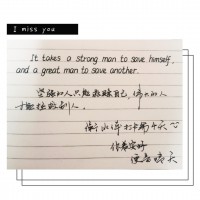 I miss you
It takes a strong man to save himself,
and a great man to save another.
坚强的人只能救赎自己,伟大的人
才能拯救别人。
打卡第 天
你若安好
便是晴天